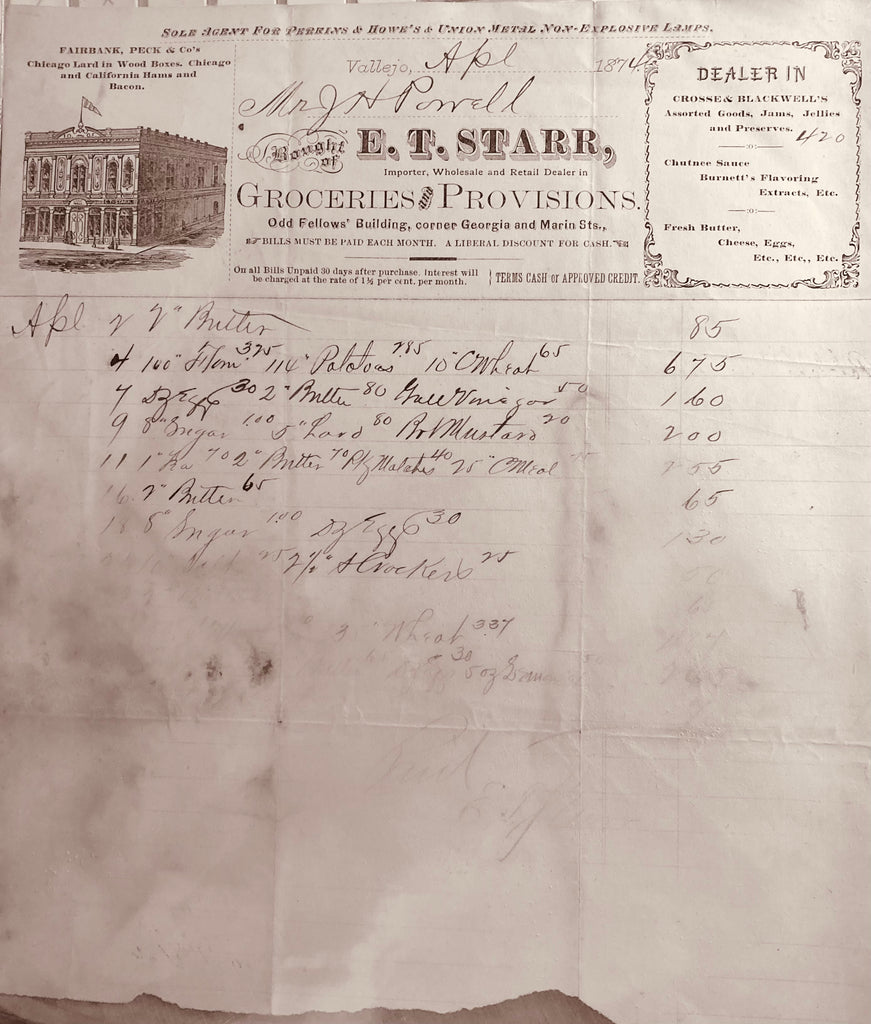 SOLE AGENT FOR PERKINS & HOWE'S & UNION METAL NON-EXPLOSIVE LAMPS.
FAIRBANK, PECK & Co's
Chicago Lard in Wood Boxes. Chicago
and California Hams and
Bacon.
Vallejo, Apl 1874
Mr J H Powell
Bought of E. T. STARR,
Importer, Wholesale and Retail Dealer in
GROCERIES AND PROVISIONS.
Odd Fellows' Building, corner Georgia and Marin Sts.,
BILLS MUST BE PAID EACH MONTH. A LIBERAL DISCOUNT FOR CASH.
On all Bills Unpaid 30 days after purchase, Interest will
be charged at the rate of 1½ per cent. per month.
TERMS CASH or APPROVED CREDIT.
DEALER IN
CROSSE & BLACKWELL'S
Assorted Goods, Jams, Jellies
and Preserves.
420
Chutnee Sauce
Burnett's Flavoring
Extracts, Etc.
Fresh Butter,
Cheese, Eggs,
Etc., Etc., Etc.
Apl 2 2" Butter 85
4 100" Flour 3.25 114" Potatoes 2.85 10" C Wheat 65 6 75
7 Dz Eggs 30 2" Butter 80 Gall Vinegar 50 1 60
9 8" Sugar 1.00 5" Lard 80 Mustard 20 2 00
11 1" 70 2" Butter 70 Pkg Matches 40 25" C Meal 2 55
16 2" Butter 65 65
18 8" Sugar 1.00 Dz Eggs 30 1 30
25 2½" S Crackers 25
Wheat 3.37
30 5 oz